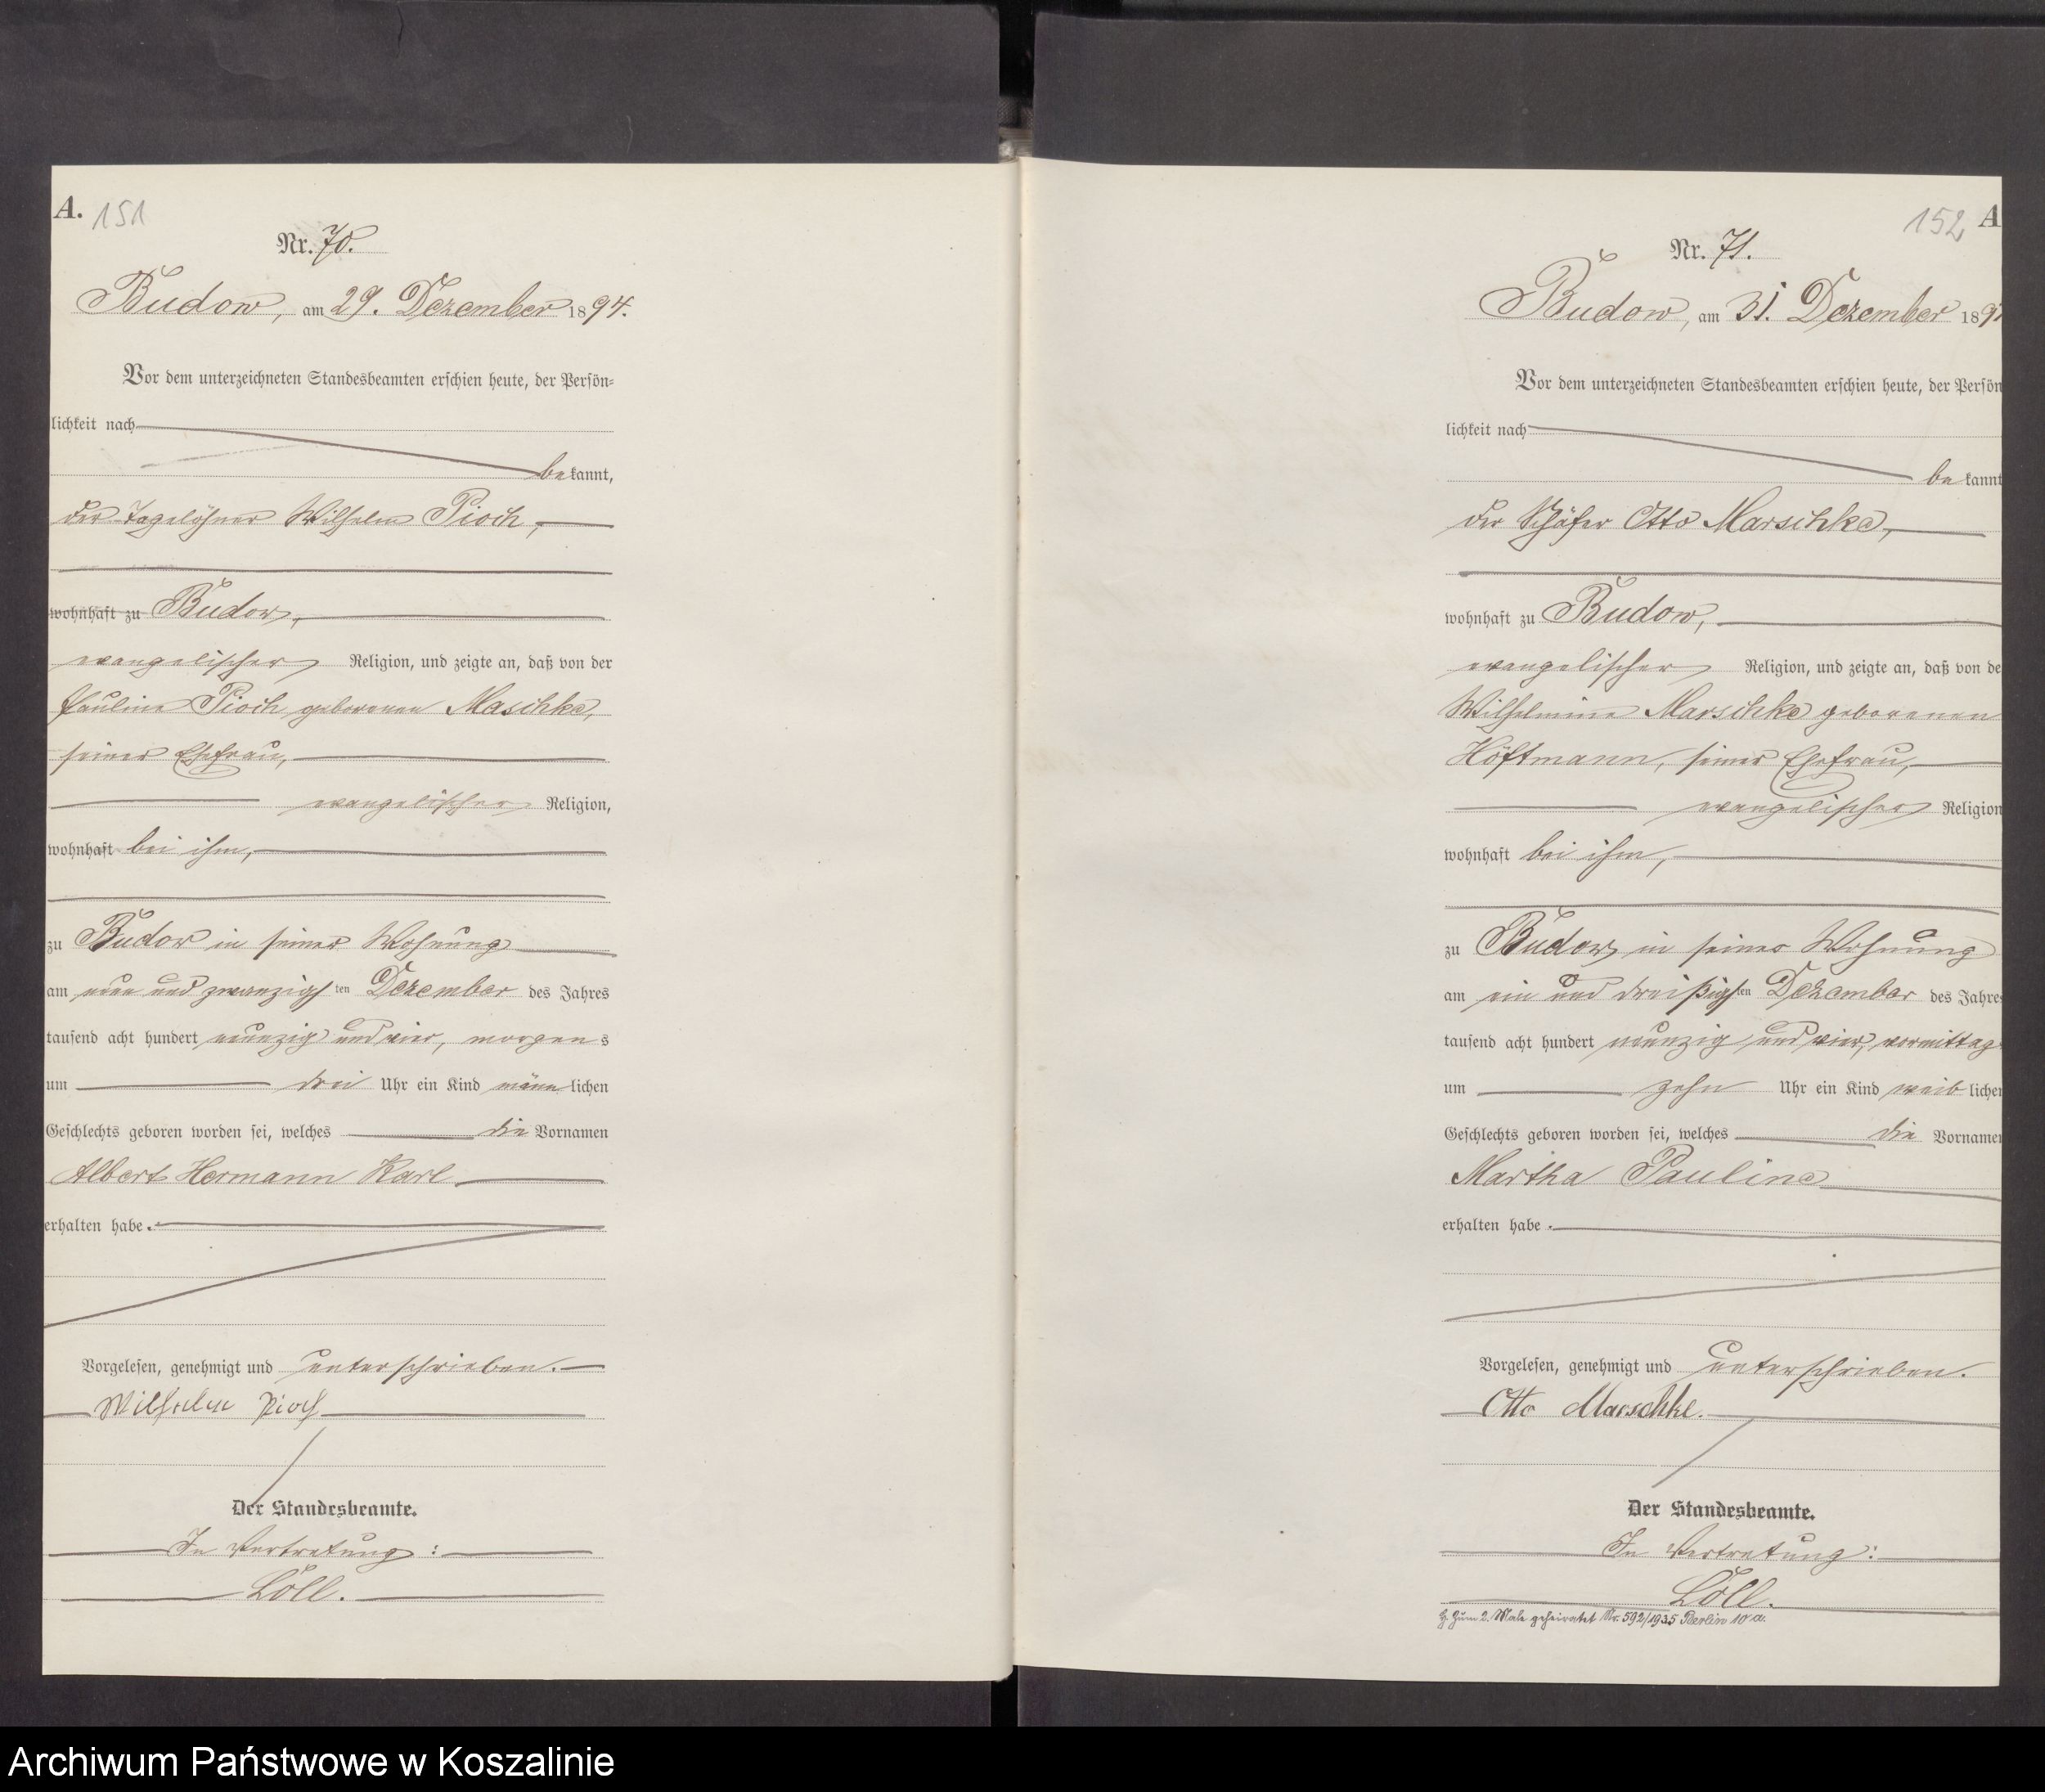 A. 151
Nr. 70.
Budow, am 29. Dezember 1894.
Vor dem unterzeichneten Standesbeamten erschien heute, der Persön=
lichkeit nach
bekannt,
der Tagelöhner Wilhelm Pioch,
wohnhaft zu Budow,
evangelischer Religion, und zeigte an, daß von der
Pauline Pioch geborenen Maschke,
seiner Ehefrau,
evangelischer Religion,
wohnhaft bei ihm,
zu Budow in seiner Wohnung
am neun und zwanzigsten Dezember des Jahres
tausend acht hundert neunzig und vier, morgens
um drei Uhr ein Kind männlichen
Geschlechts geboren worden sei, welches die Vornamen
Albert Hermann Karl
erhalten habe.
Vorgelesen, genehmigt und unterschrieben.
Wilhelm Pioch
Der Standesbeamte.
In Vertretung:
Löll.
152 A
Nr. 71.
Budow, am 31. Dezember 189
Vor dem unterzeichneten Standesbeamten erschien heute, der Persön
lichkeit nach
bekannt
der Schäfer Otto Marschke,
wohnhaft zu Budow,
evangelischer Religion, und zeigte an, daß von de
Wilhelmine Marschke geborenen
Höftmann, seiner Ehefrau,
evangelischer Religion
wohnhaft bei ihm,
zu Budow in seiner Wohnung
am ein und dreißigsten Dezember des Jahres
tausend acht hundert neunzig und vier, vormittag
um zehn Uhr ein Kind weiblichen
Geschlechts geboren worden sei, welches die Vornamen
Martha Pauline
erhalten habe.
Vorgelesen, genehmigt und unterschrieben.
Otto Marschke.
Der Standesbeamte.
In Vertretung:
Löll.
H. Zum 2. Male geheiratet Nr. 592/1935 Berlin 10a.
Archiwum Państwowe w Koszalinie